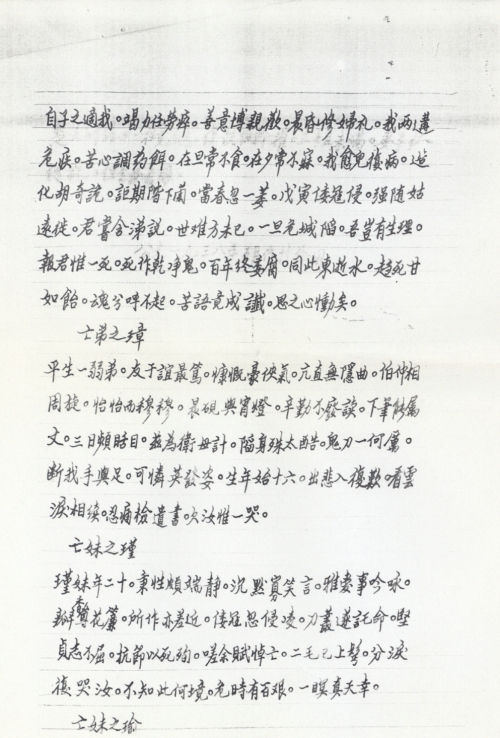 自子之適我。竭力任勞瘁。善意博親歡。晨昏修婦礼。我两遘
危疾。苦心調药餌。在旦常不食。在夕常不寐。我愈兒復病。造
化胡奇詭。詎期階下蘭。當春忽一萎。戊寅倭寇侵。强随姑
遠徙。君嘗含涕説。世难方未已。一旦危城陷。吾豈有生理。
報君惟一死。死作乾净鬼。百年终委腐。同此東逝水。趋死甘
如飴。魂兮呼不起。苦語竟成讖。思之心慟矣。
亡弟之璋
平生一弱弟。友于誼最篤。慷慨豪俠氣。亢直無隱曲。伯仲相
周旋。怡怡而穆穆。晨硯與宵燈。辛勤不廢讀。下筆能属
文。三日頻刮目。兹為衛母計。陷身殊太酷。鬼刀一何厲。
断我手與足。可憐英發姿。生年始十六。出悲入復歎。看雲
淚相续。忍痛檢遺書。哭汝惟一哭。
亡妹之瑾
瑾妹年二十。秉性頗端靜。沉默寡笑言。雅委事吟咏。
瓣鶯花簾。所作亦差近。倭寇忽侵凌。刀叢遂託命。堅
貞志不屈。抗節以死殉。嗟余賦悼亡。二毛已上鬢。分淚
復哭汝。不知此何境。危時有百艰。一暝真天幸。
亡妹之瑜